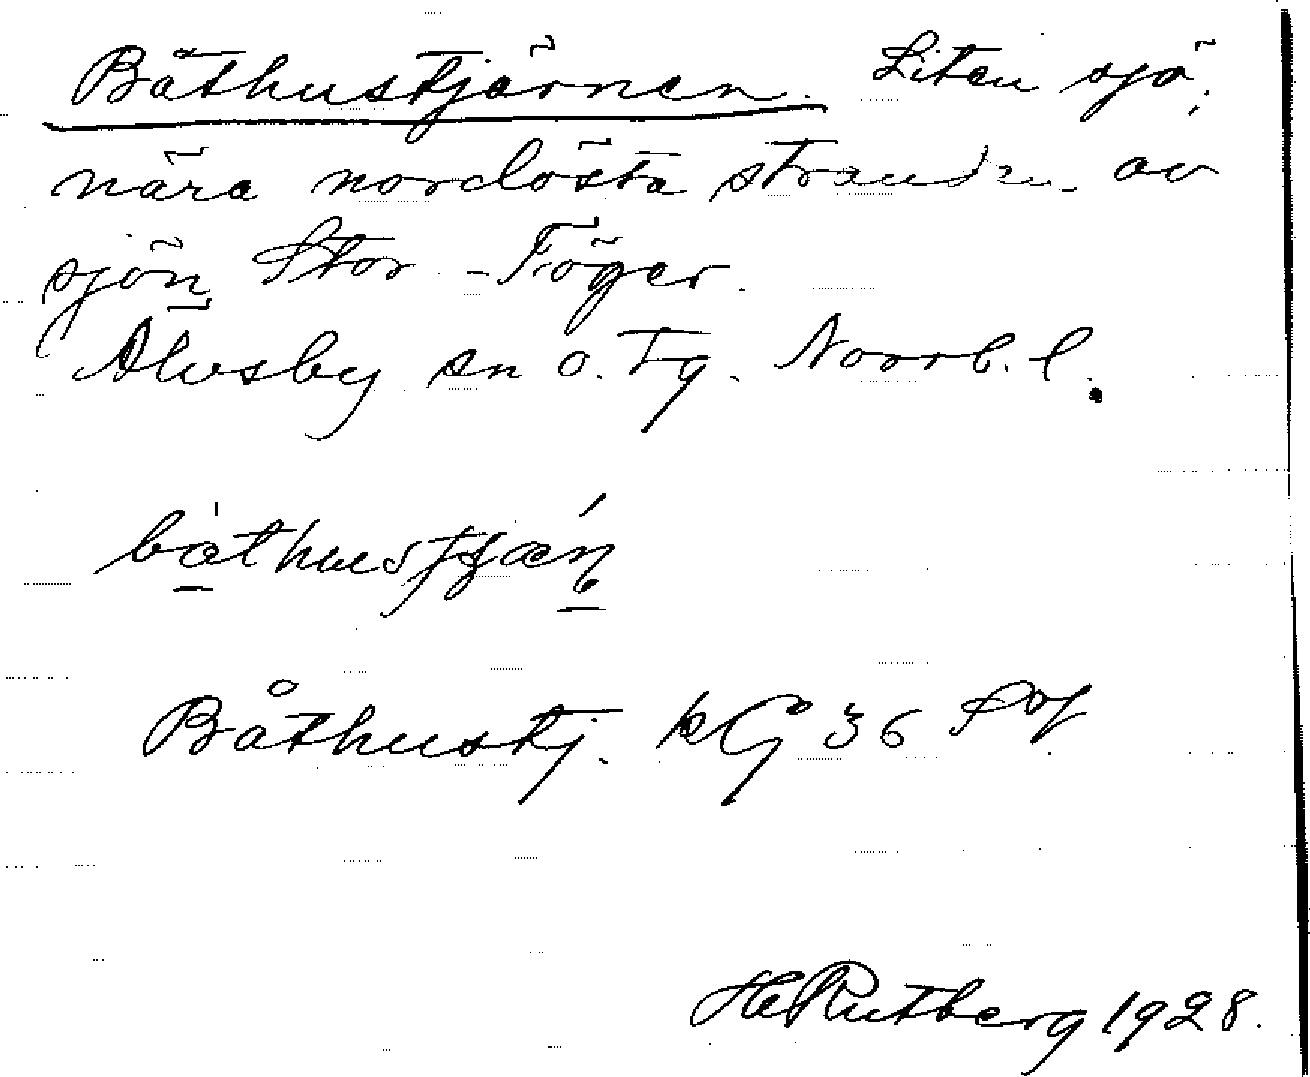 Båthustjärnen. Liten sjö,
nära nordösta stranden av
sjön Stor-Töger.
Älvsby sn o. tg. Norrb. l.
Båthustj. kG 36
H Rutberg 1928.